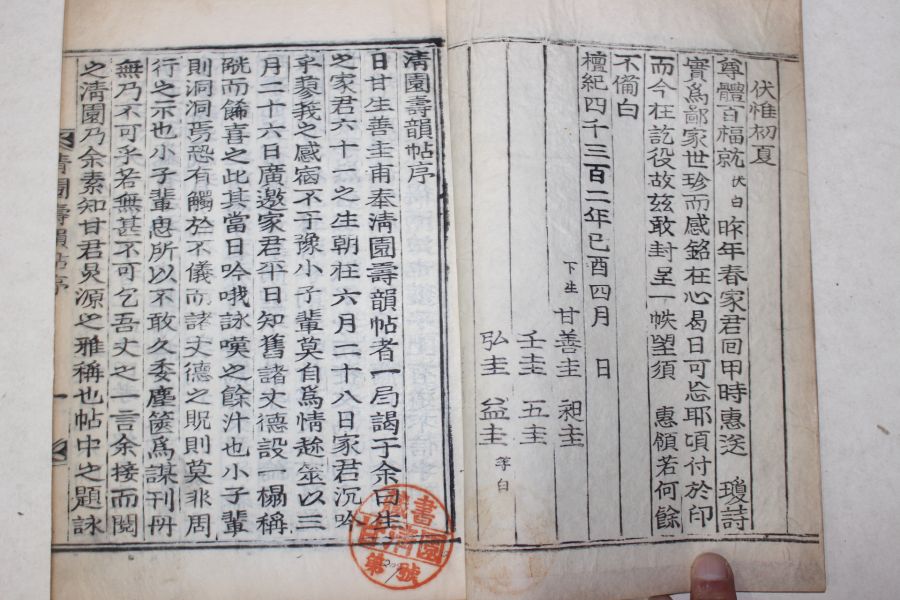 伏惟初夏
尊體百福就 伏白 昨年春家君回甲時惠送 瓊詩
實爲鄙家世珍而感銘在心曷日可忘耶頃付於印
而今在訖役故玆敢封呈一帙望須 惠領若何餘
不備白
檀紀四千三百二年己酉四月 日
下生 甘善圭 昶圭
壬圭 五圭
弘圭 益圭 等白
淸園壽韻帖序
日甘生善圭甫奉淸園壽韻帖者一局謁于余曰生
之家君六十一之生朝在六月二十八日家君沉吟
乎蓼莪之感宿不于豫小子輩莫自爲情趂筮以三
月二十六日廣邀家君平日知舊諸丈德設一榻稱
觥而餙喜之此其當日吟哦詠嘆之餘汁也小子輩
則洞洞焉恐有觸於不儀而諸丈德之貺則莫非周
行之示也小子輩思所以不敢久委塵篋爲謀刊冊
無乃不可乎若無甚不可乞吾丈之一言余接而閱
之淸園乃余素知甘君炅源之雅稱也帖中之題詠
淸園壽韻帖序
一
藏書
甘淸園
第 號